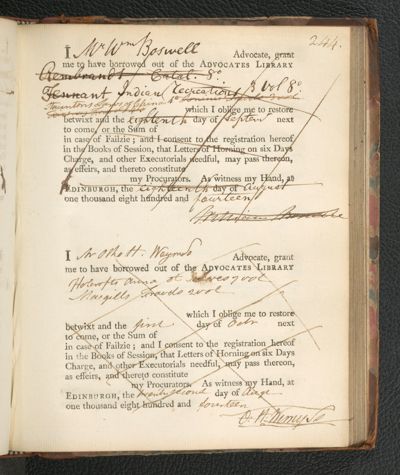 244.
I Mr Wm Boswell Advocate, grant
me to have borrowed out of the ADVOCATES LIBRARY
Rembrandt Catal. 8o
Tennant Indian Recreations 3 Vol 8o
Stauntons China
which I oblige me to restore
betwixt and the eighteenth day of Septem next
to come, or the Sum of
in case of Failzie ; and I consent to the registration hereof
in the Books of Session, that Letters of Horning on six Days
Charge, and other Executorials needful, may pass thereon,
as effeirs, and thereto constitute
my Procurators. As witness my Hand, at
EDINBURGH, the eighteenth day of August
one thousand eight hundred and fourteen
William Boswell
I Mr Advocate, grant
me to have borrowed out of the ADVOCATES LIBRARY
Holcrofts Anna St Ives 7 vol
Macgills Travels 2 vol
which I oblige me to restore
betwixt and the first day of Octr next
to come, or the Sum of
in case of Failzie ; and I consent to the registration hereof
in the Books of Session, that Letters of Horning on six Days
Charge, and other Executorials needful, may pass thereon,
as effeirs, and thereto constitute
my Procurators. As witness my Hand, at
EDINBURGH, the twenty second day of Augt
one thousand eight hundred and fourteen